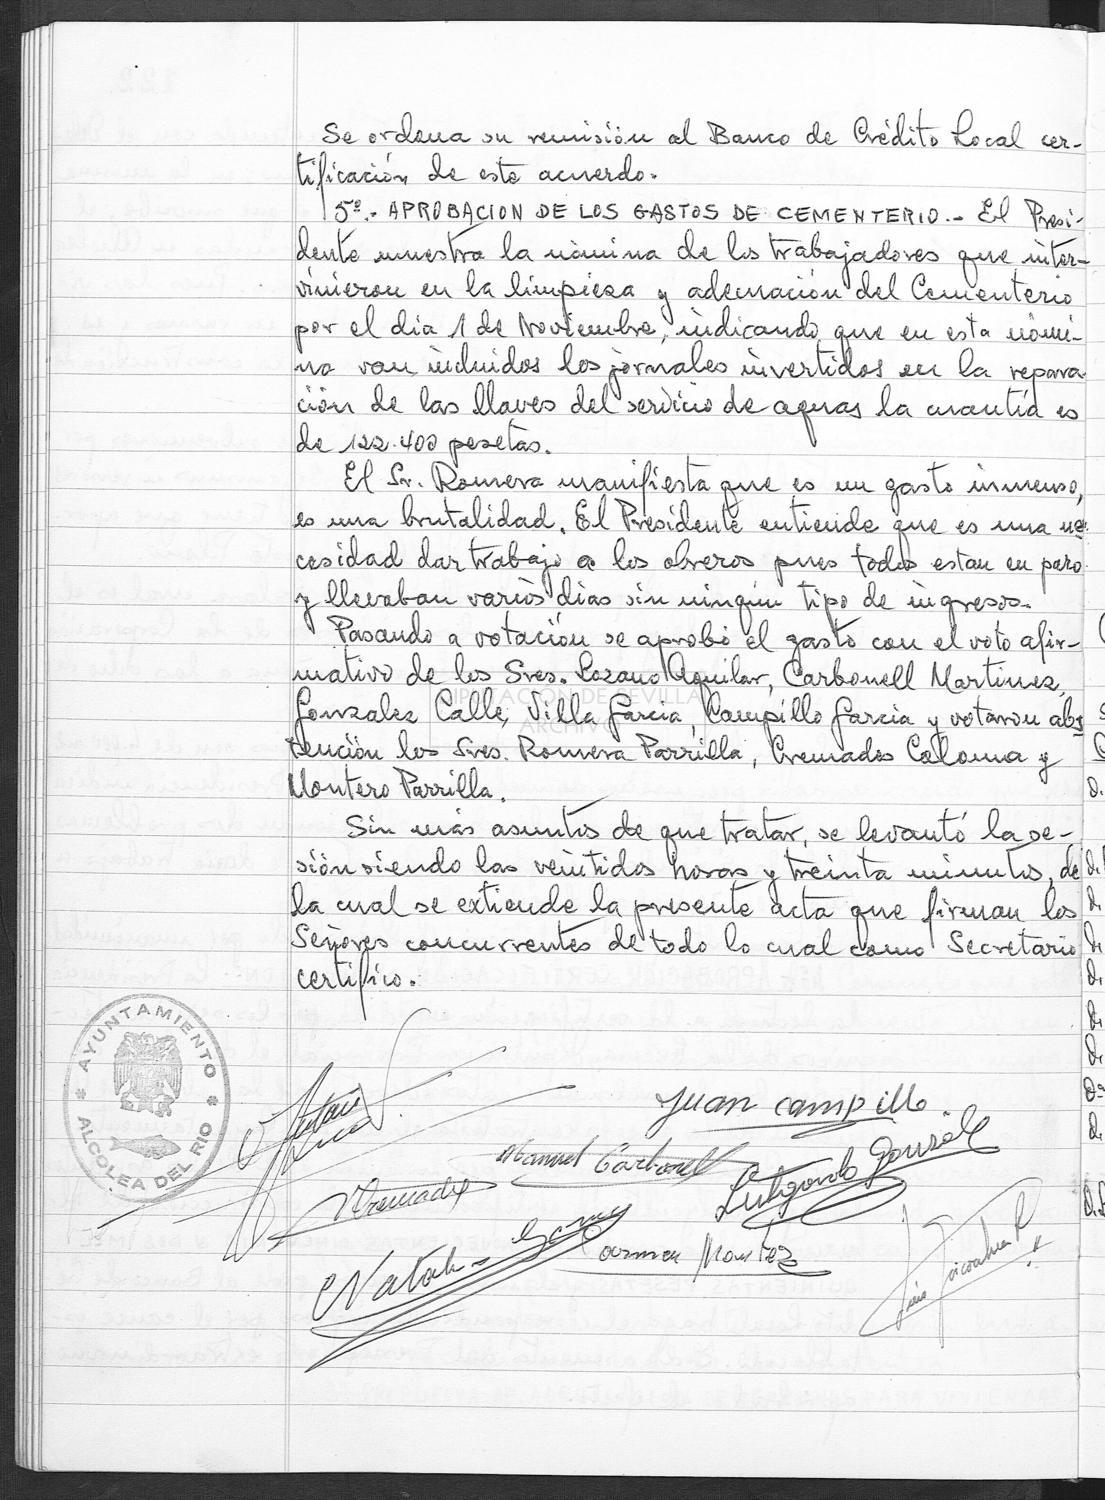 Se ordena su remisión al Banco de Crédito Local cer-
tificación de este acuerdo.
5º.- APROBACION DE LOS GASTOS DE CEMENTERIO.- El Presi-
dente muestra la nómina de los trabajadores que inter-
vinieron en la limpieza y adecuación del Cementerio
por el dia 1 de Noviembre, indicando que en esta nómi-
na van incluidos los jornales invertidos en la repara
ción de las llaves del servicio de aguas la cuantía es
de 122.400 pesetas.
El Sr. Romera manifiesta que es un gasto inmenso,
es una brutalidad. El Presidente entiende que es una ne-
cesidad dar trabajo a los obreros pues todos estan en paro
y llevaban varios dias sin ningún tipo de ingresos.
Pasando a votación se aprobó el gasto con el voto afir-
mativo de los Sres. Lozano Aguilar, Carbonell Martinez,
Gonzalez Calle, Villa Garcia, Campillo Garcia y votaron abs
tención los Sres. Romera Parrilla, Cremades Coloma y
Montero Parrilla.
Sin más asuntos de que tratar, se levantó la se-
sión siendo las veintidos horas y treinta minutos, de
la cual se extiende la presente acta que firman los
Señores concurrentes de todo lo cual como Secretario
certifico.
DIPUTACIÓN DE SEVILLA
ARCHIVO
AYUNTAMIENTO
ALCOLEA DEL RIO
Juan Campillo
Manuel Carbonell
Cremades